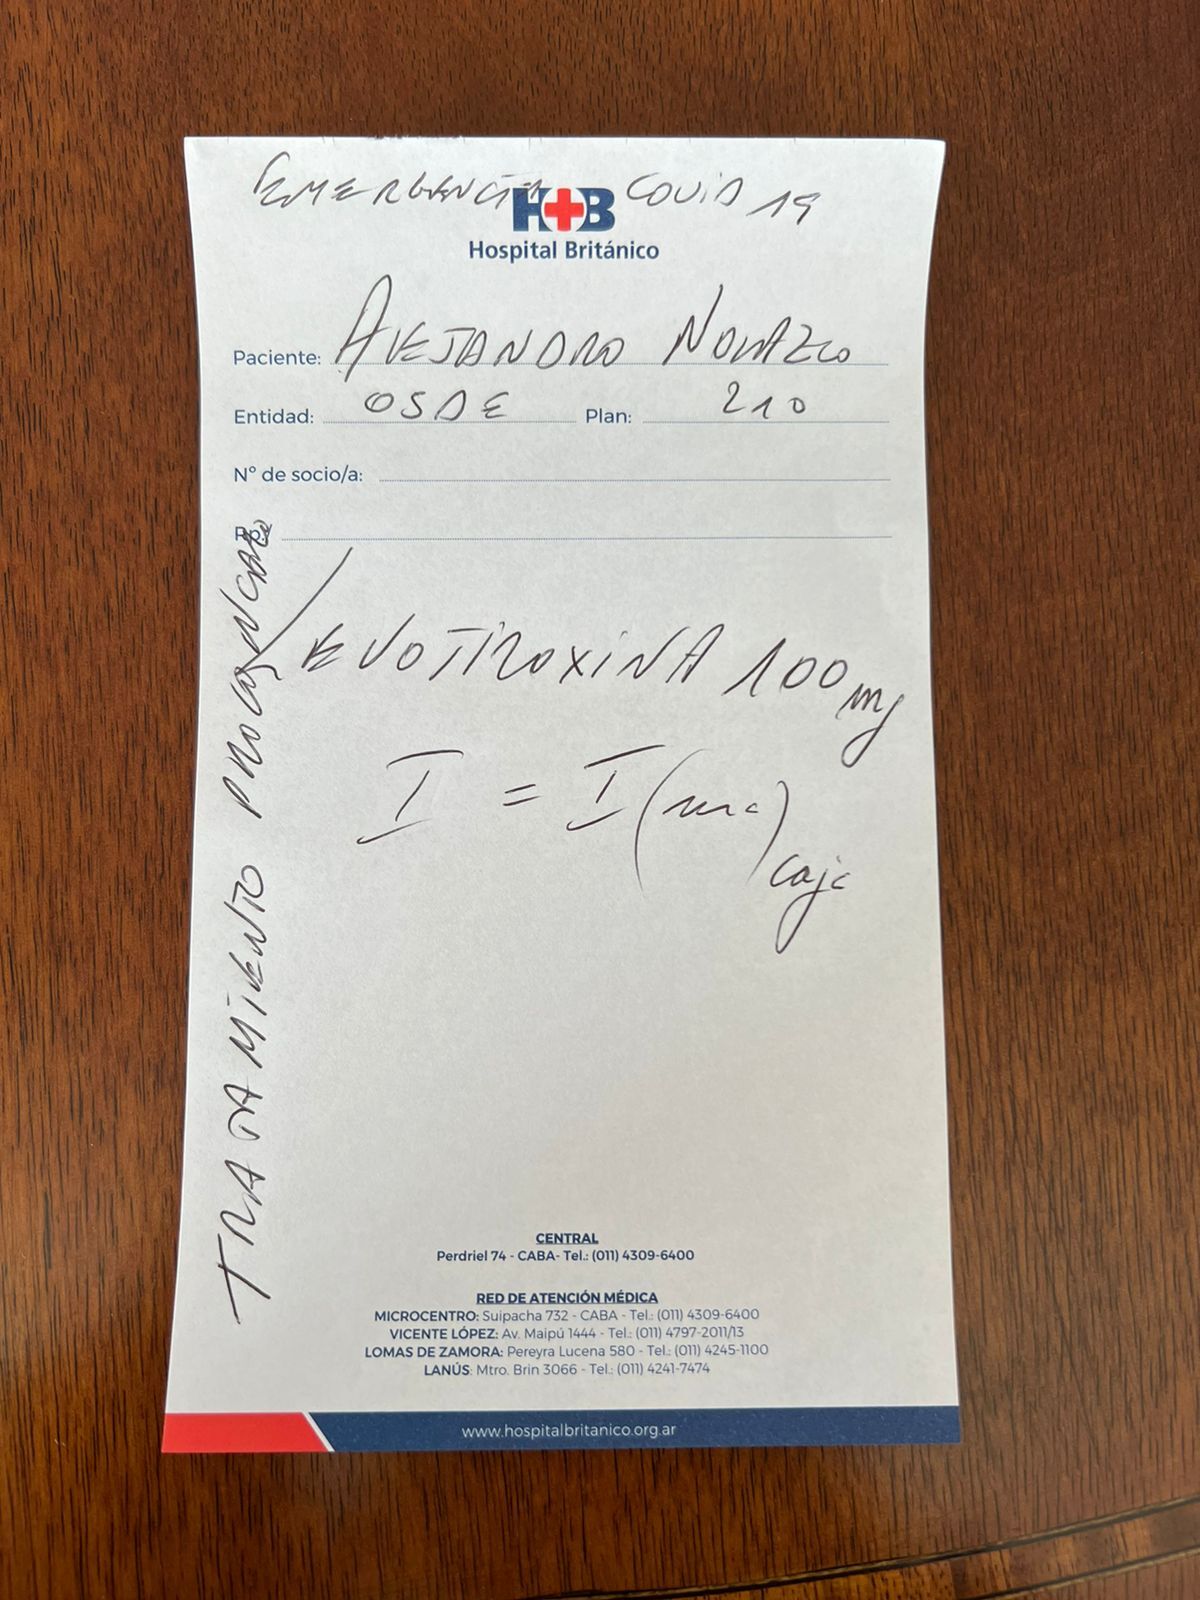 EMERGENCIA COVID 19
H+B
Hospital Británico
Paciente: ALEJANDRO
Entidad: OSDE Plan: 210
N° de socio/a:
Rp.
TRATAMIENTO PROLONGADO
LEVOTIROXINA 100 mg
I = I (una) caja
CENTRAL
Perdriel 74 - CABA- Tel.: (011) 4309-6400
RED DE ATENCIÓN MÉDICA
MICROCENTRO: Suipacha 732 - CABA - Tel.: (011) 4309-6400
VICENTE LÓPEZ: Av. Maipú 1444 - Tel.: (011) 4797-2011/13
LOMAS DE ZAMORA: Pereyra Lucena 580 - Tel.: (011) 4245-1100
LANÚS: Mtro. Brin 3066 - Tel.: (011) 4241-7474
www.hospitalbritanico.org.ar